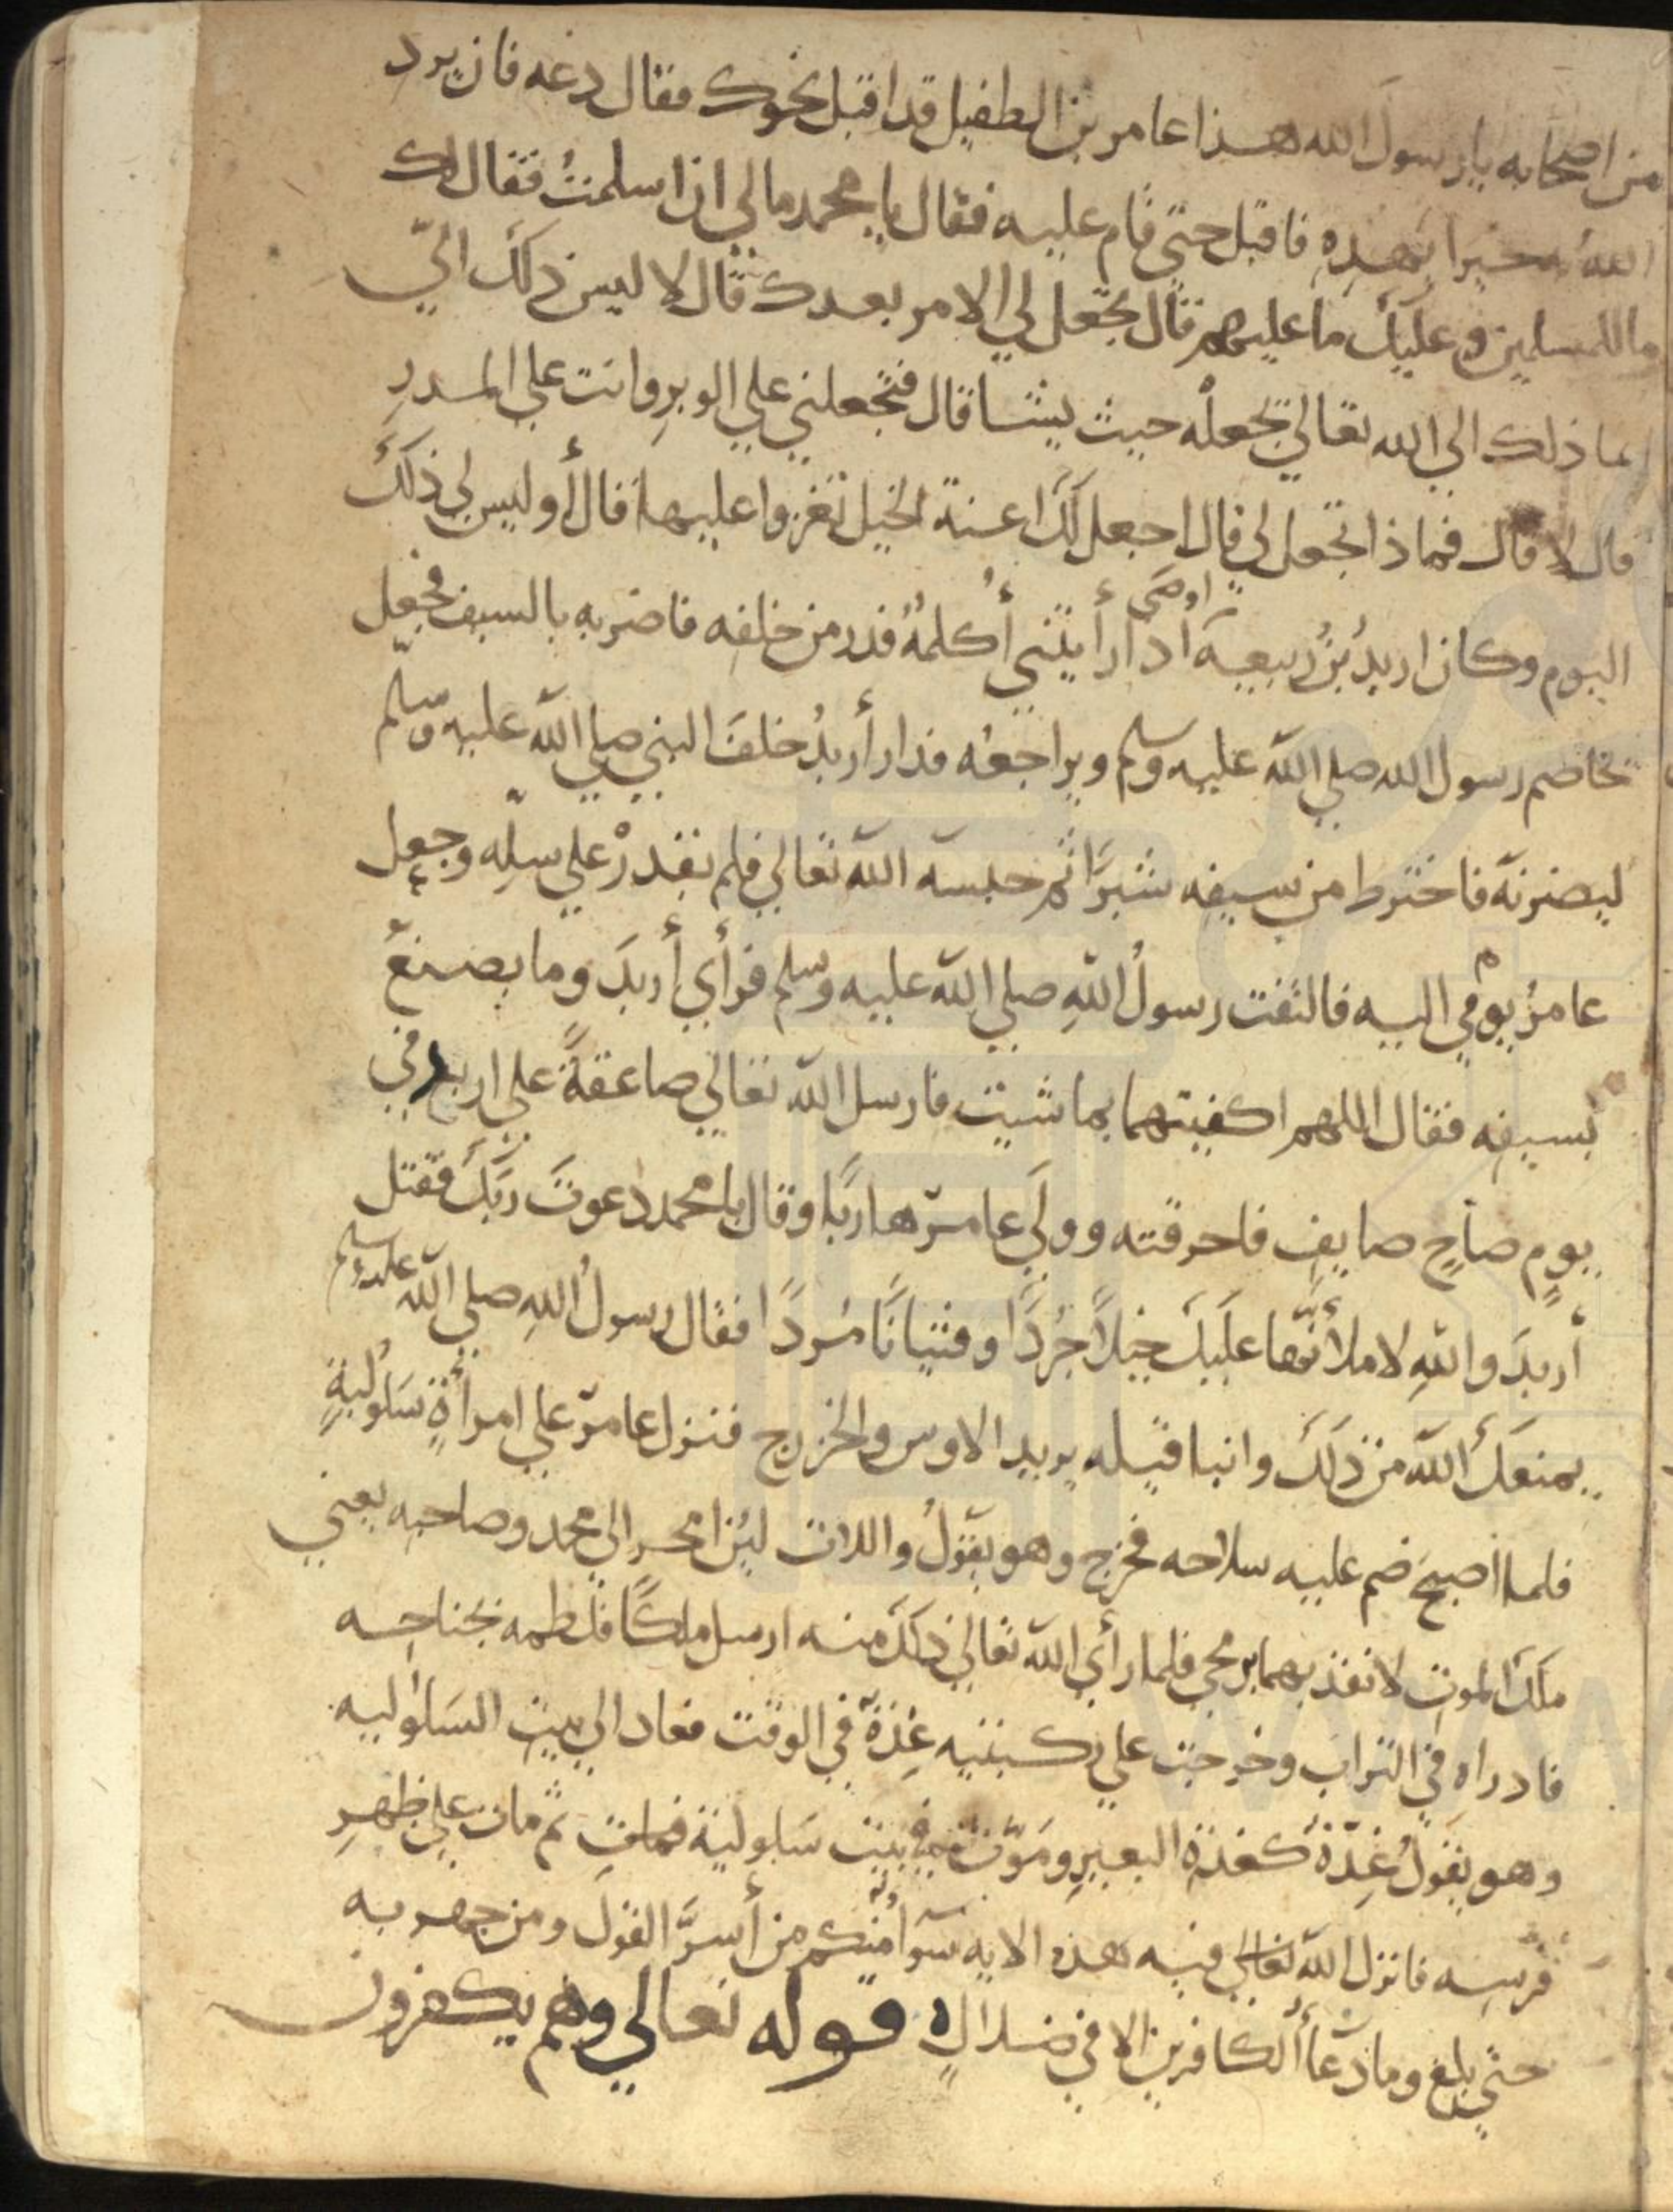 من اصحابه يا رسولَ الله هذا عامر بن الطفيل قد اقبل نحوك فقال دعه فان يرد
اللهُ به خيرا يَهْدِهِ فاقبل حتي قام عليه فقال يا محمد مالي ان اسلمتُ فقال لك
ما للمسلمين وعليك ما عليهم قال تجعل لي الامر بعدك قال لا ليس ذلك اليّ
انما ذلك الي الله تعالي يجعلُه حيث يشا قال فتجعلني علي الوبرِ وانت علي المدرِ
قال لا قال فماذا تجعل لي قال اجعل لك اعنة الخيل تغزوا عليها قال أوليس لي ذلك
اوصَى
اليوم وكان اربدُ بنُ ربيعة اذا رأيتني أُكلمهُ فدر من خلفه فاضربه بالسيف فجعل
يخاصم رسول الله صلي الله عليه وسلم ويراجعُه فدار أربدُ خلفَ النبي صلي الله عليه وسلم
ليضربَه فاخترط من سيفه شبرًا ثم حبسه الله تعالي فلم يقدرْ علي سلِّه وجعل
عامرُ يومي اليه فالتفت رسولُ اللهِ صلي الله عليه وسلم فرأي أربدَ وما يصنعُ
بسيفِه فقال اللهم اكفيتهما بما شيت فارسل الله تعالي صاعقةً علي اربد في
يومٍ صاحٍ صايفٍ فاحرقته وولَي عامرٌ هاربًا وقال يا محمد دعوتَ ربَّكَ فقتل
أربدَ واللهِ لاملأنّها عليكَ خيلًا جُرْدًا وفتيانًا مُردًا فقال رسولُ اللهِ صلي الله عليه وسلم
يمنعكَ الله من ذلكَ وانبا قيله يريد الاوس والخزرج فنزل عامرٌ علي امرأةٍ سَلُوليةٍ
فلما اصبحَ ضم عليه سلاحه فخرج وهو يقولُ واللات لين اصحر الي محمد وصاحبه يعني
ملَكَ الموتِ لانفذنهما برمحي فلما رأي الله تعالي ذلك منه ارسل ملكًا فلطمه بجناحه
فادراه في الترابِ وخرجت علي ركبتيه غدةٌ في الوقت فعاد الي بيت السَلوليه
وهو يقولُ غدّةٌ كغدة البعيرِ وموتٌ في بيت سَلولية فماتِ ثم مات علي ظهرِ
فرسِه فانزل الله تعالي فيه هذه الايه سَوآ مِنكم من أسرَّ القولَ ومن جهر به
حتي بلغ وما دُعآ الكافرين الا في ضلالٍ ه قوله تعالي وهم يكفرون